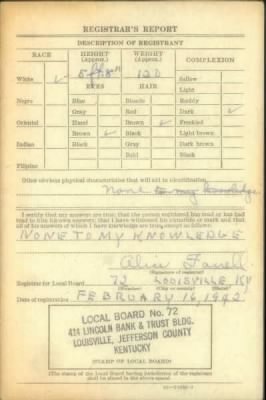 REGISTRAR'S REPORT
DESCRIPTION OF REGISTRANT
RACE HEIGHT (Approx.) WEIGHT (Approx.) COMPLEXION
White ✓ 120 Sallow
Light
EYES HAIR
Negro Blue Blonde Ruddy
Gray Red Dark ✓
Oriental Hazel Brown ✓ Freckled
Brown ✓ Black Light brown
Indian Black Gray Dark brown
Bald Black
Filipino
Other obvious physical characteristics that will aid in identification
None to my knowledge
I certify that my answers are true; that the person registered has read or has had
read to him his own answers; that I have witnessed his signature or mark and that
all of his answers of which I have knowledge are true, except as follows:
NONE TO MY KNOWLEDGE
Registrar for Local Board 72 LOUISVILLE KY
(Number) (City or county) (State)
Date of registration FEBRUARY 16, 1942
LOCAL BOARD No. 72
414 LINCOLN BANK & TRUST BLDG.
LOUISVILLE, JEFFERSON COUNTY
KENTUCKY
(STAMP OF LOCAL BOARD)
(The stamp of the Local Board having jurisdiction of the registrant
shall be placed in the above space)